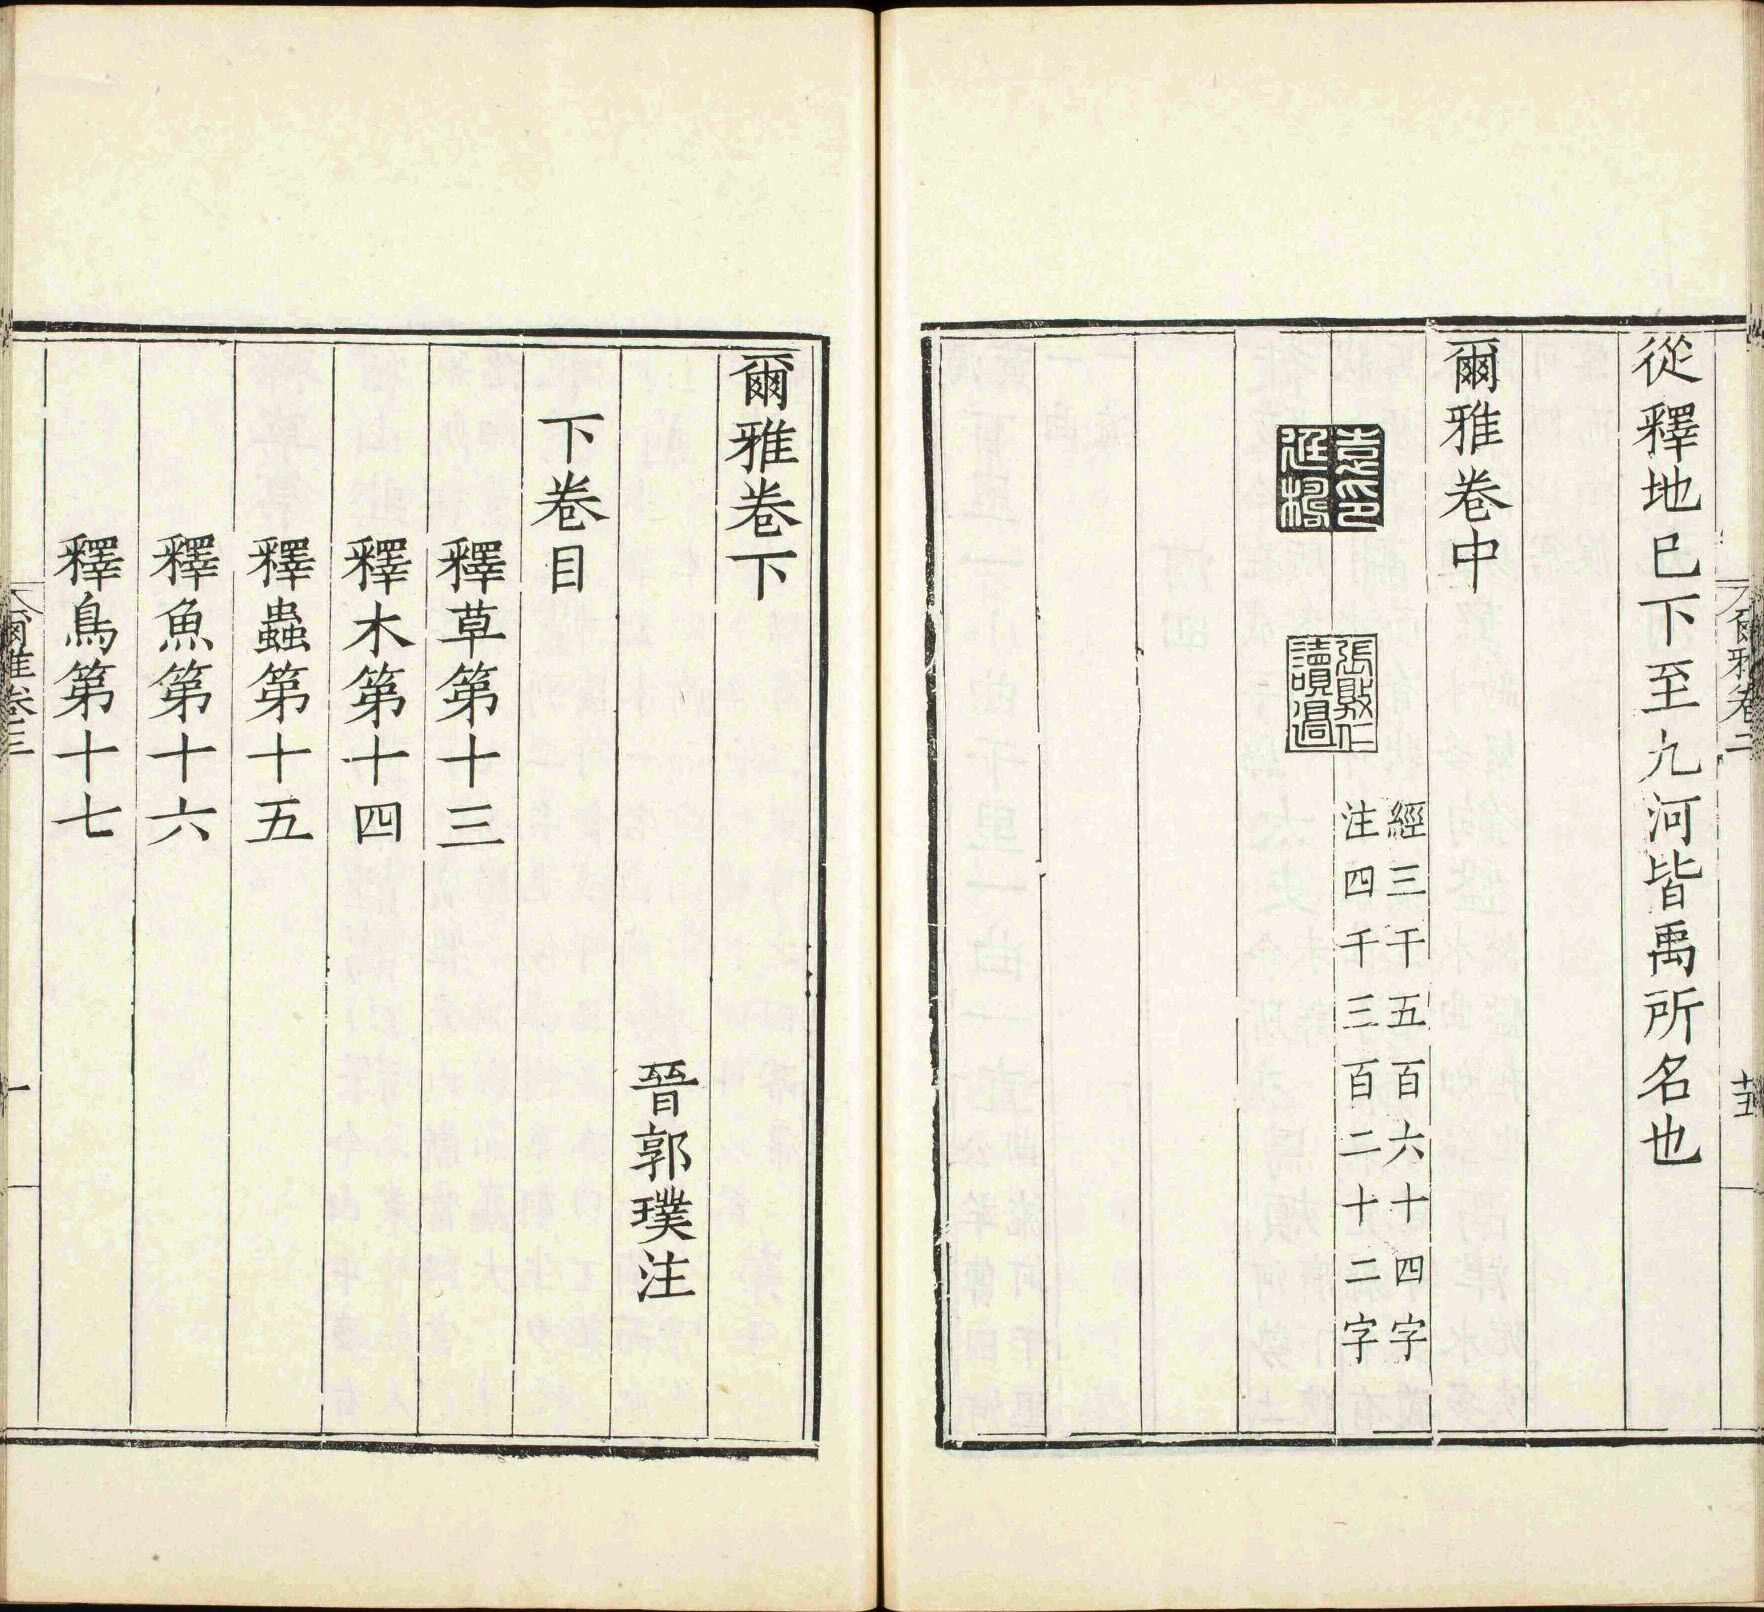 爾雅卷二
從釋地巳下至九河皆禹所名也
爾雅卷中
經三千五百六十四字
注四千三百二十二字
袁印廷檮
張敦仁讀過
爾雅卷下
晉郭璞注
下卷目
釋草第十三
釋木第十四
釋蟲第十五
釋魚第十六
釋鳥第十七
爾雅卷三
一